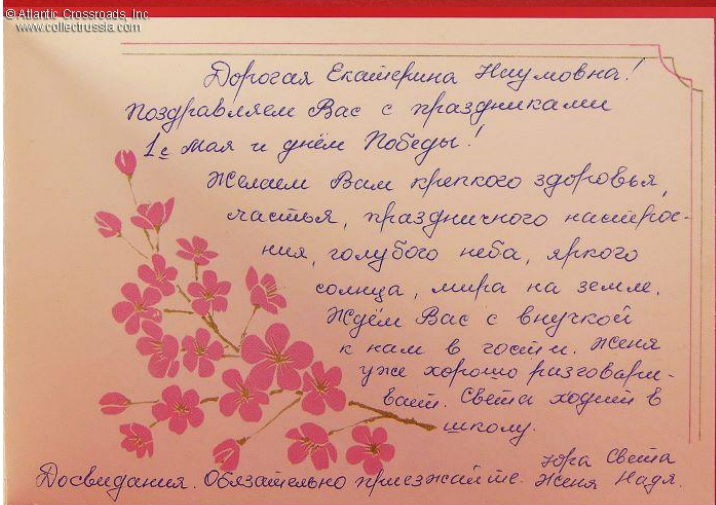 © Atlantic Crossroads, Inc.
www.collectrussia.com
Дорогая Екатерина Наумовна!
Поздравляем Вас с праздниками
1е Мая и днём Победы!
Желаем Вам крепкого здоровья,
счастья, праздничного настрое-
ния, голубого неба, яркого
солнца, мира на земле.
Ждём Вас с внучкой
к нам в гости. Женя
уже хорошо разговари-
вает. Света ходит в
школу.
Юра Света
Досвидания. Обязательно приезжайте. Женя Надя.